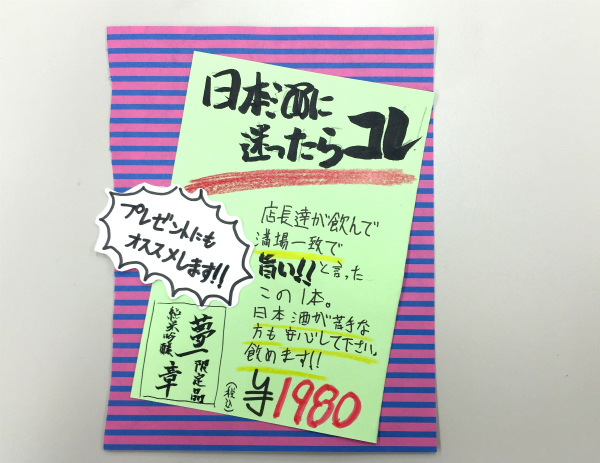 日本酒に
迷ったらコレ
店長達が飲んで
満場一致で
旨い!!と言った
この1本。
日本酒が苦手な
方も安心して下さい。
飲めます!!
プレゼントにも
オススメします!!
夢一章
純米吟醸
限定品
(税込)
¥1980